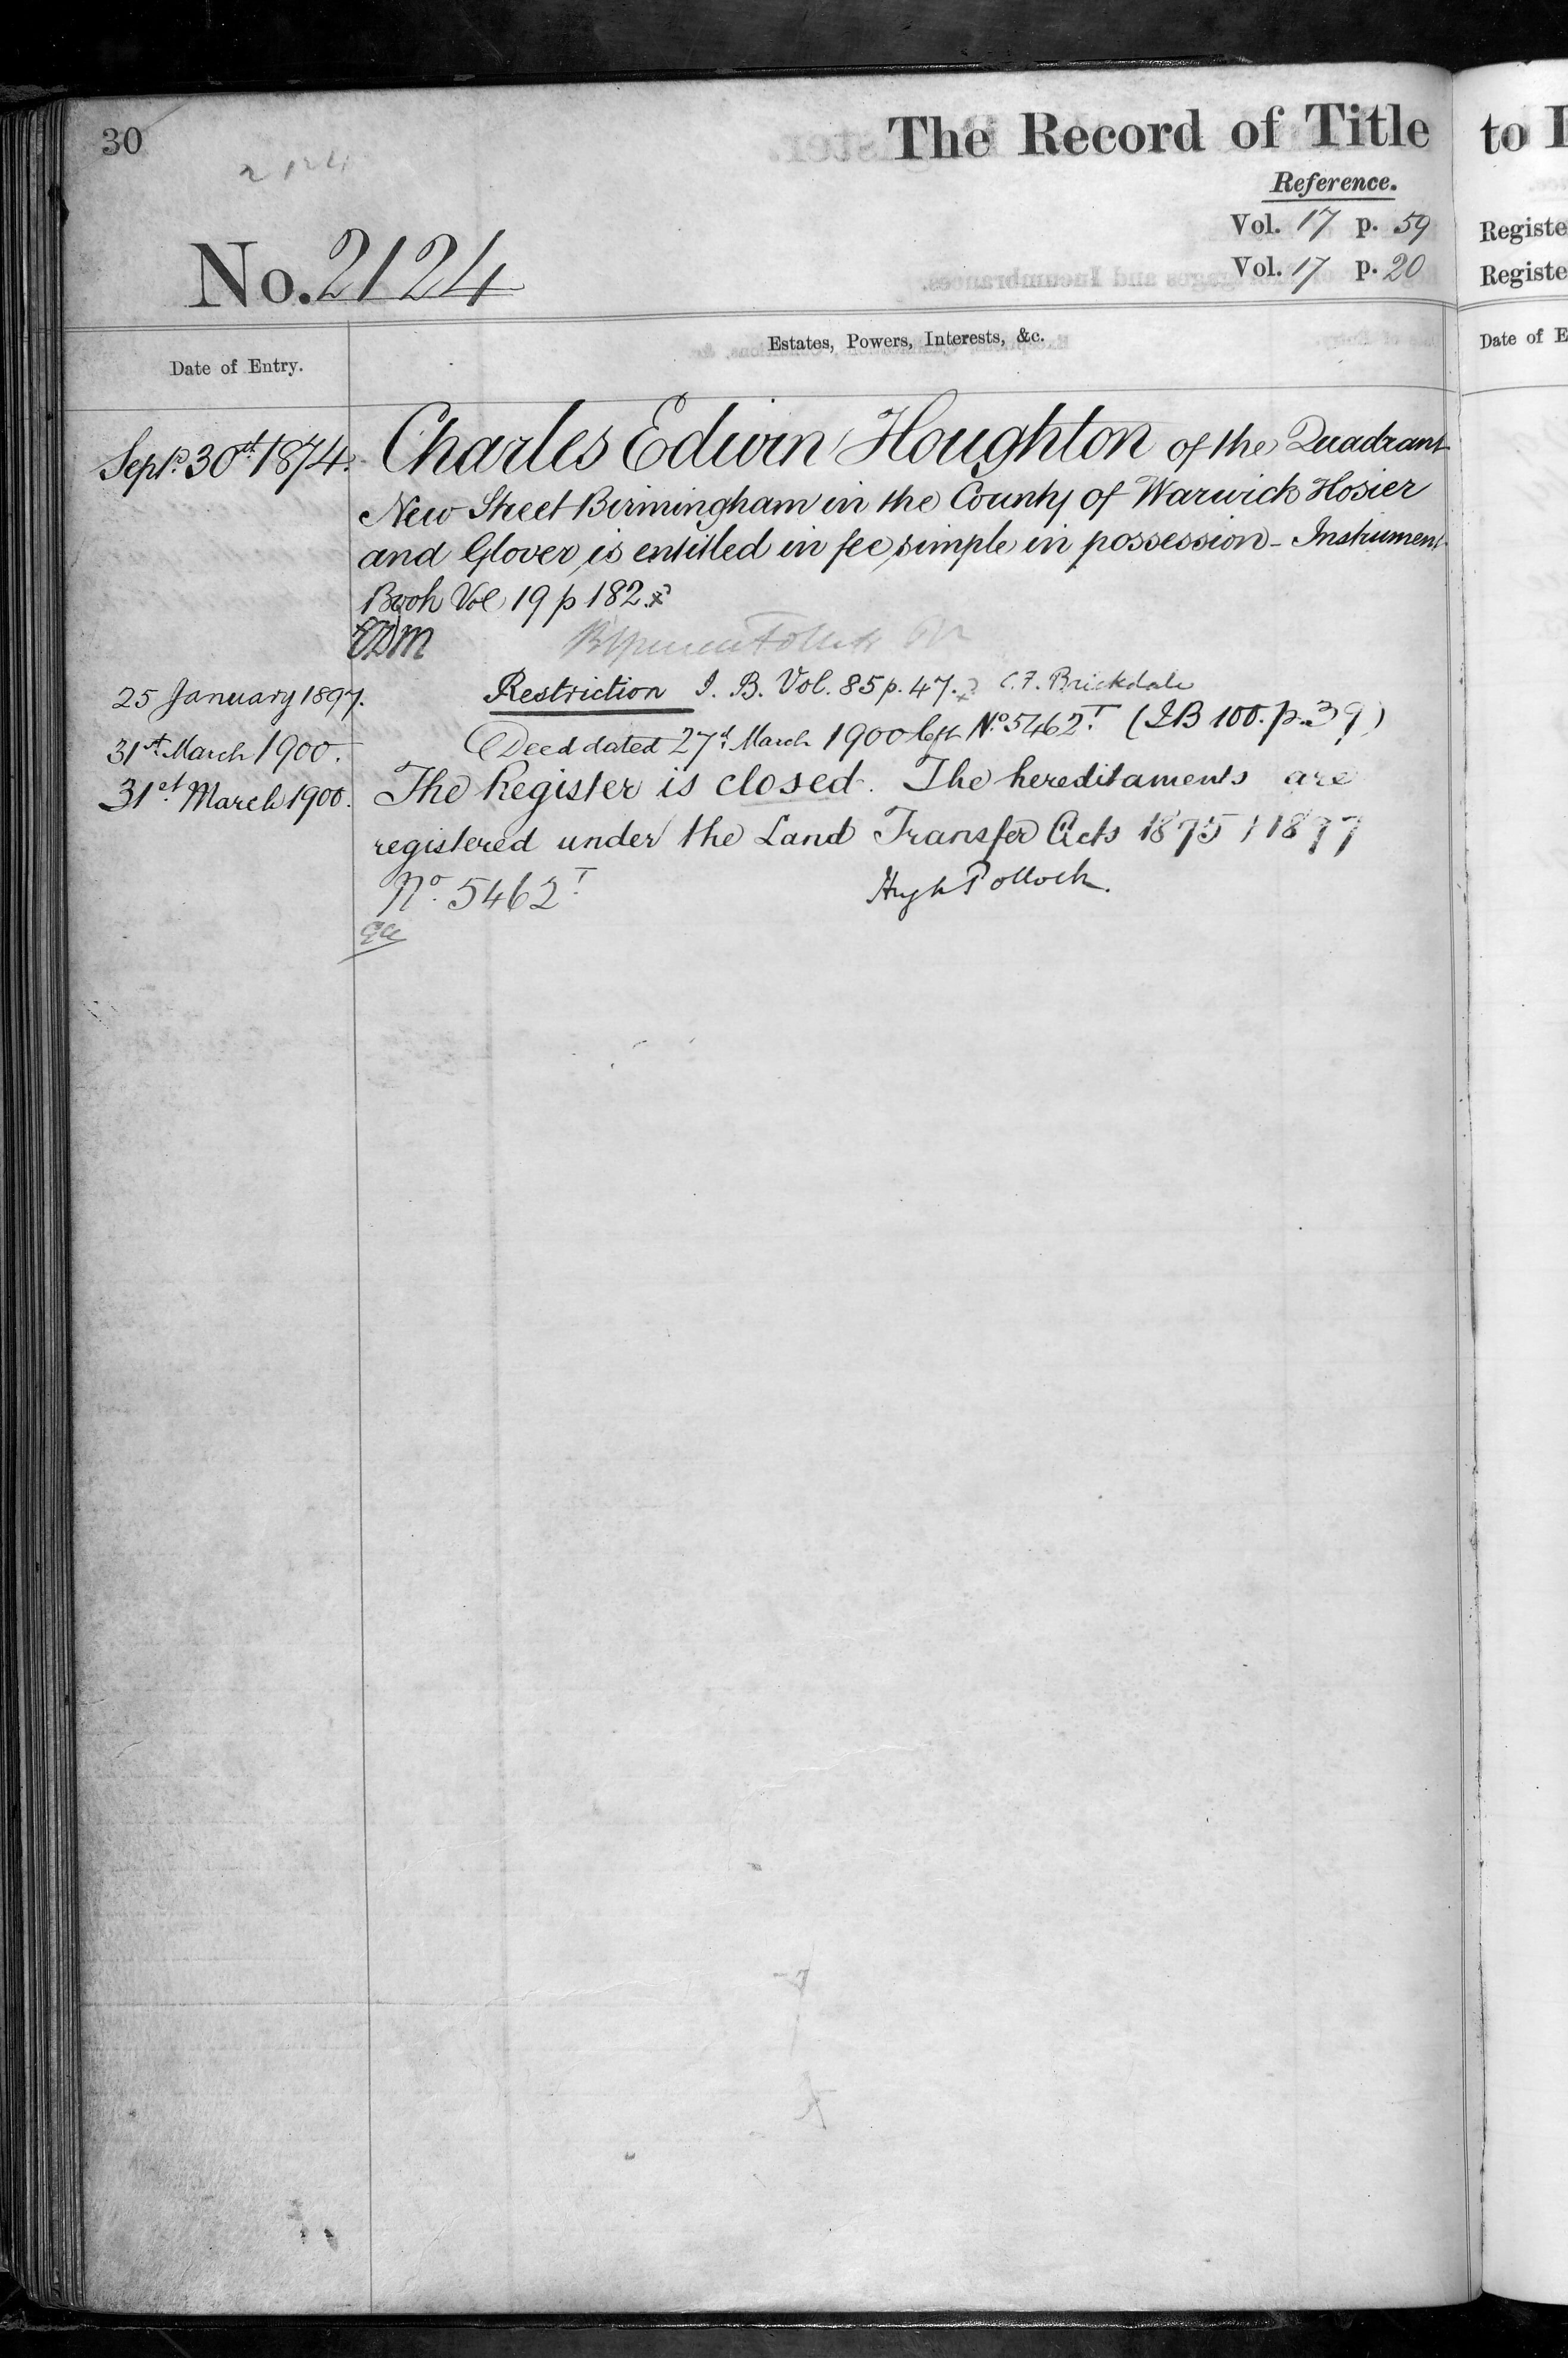 30
2124
The Record of Title
Reference.
Vol. 17 p. 59
Vol. 17 p. 20
No. 2124
Date of Entry.
Estates, Powers, Interests, &c.
Sept. 30th 1874.
Charles Edwin Houghton of the Quadrant
New Street Birmingham in the County of Warwick Hosier
and Glover is entitled in fee simple in possession - Instrument
Book Vol 19 p 182.
25 January 1897.
Restriction I. B. Vol. 85 p. 47. C. F. Brickdale
31st March 1900.
Deed dated 27th March 1900 left No. 5462 T (IB 100. p. 39)
31st March 1900.
The Register is closed. The hereditaments are
registered under the Land Transfer Acts 1875 & 1897
No. 5462 T
Hugh Pollock.
to
Registe
Registe
Date of E